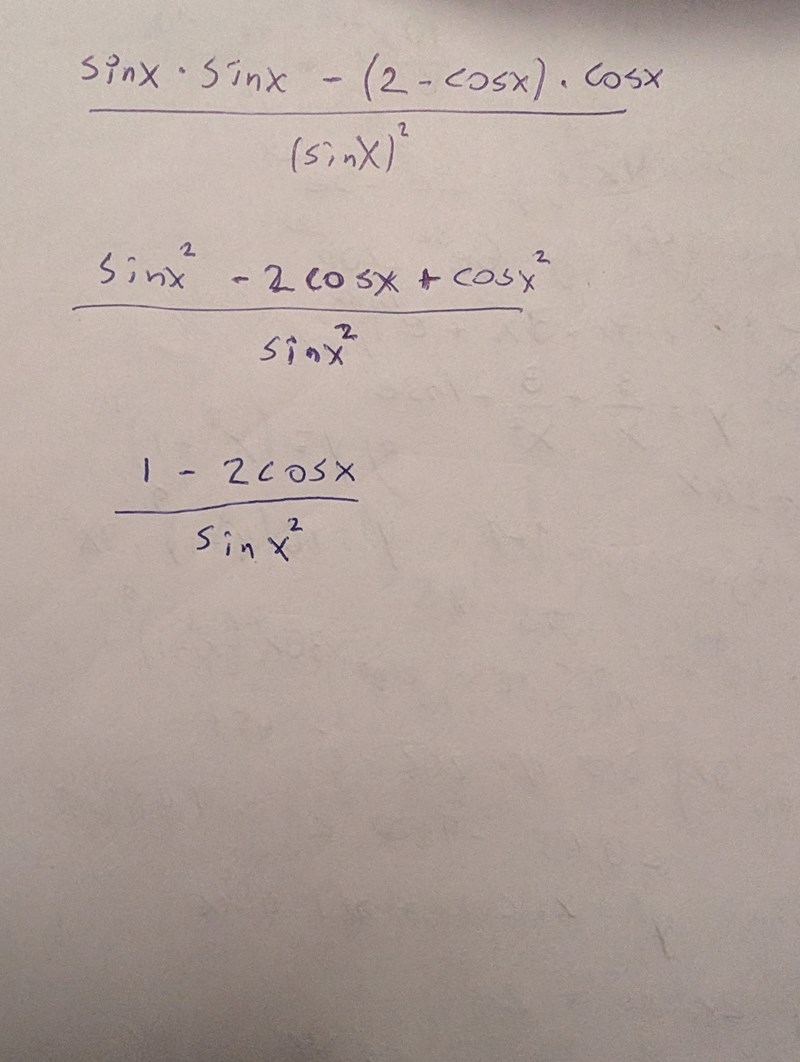 sinx · sinx - (2 - cosx) · cosx
(sinx)²
sinx² - 2cosx + cosx²
sinx²
1 - 2cosx
sinx²